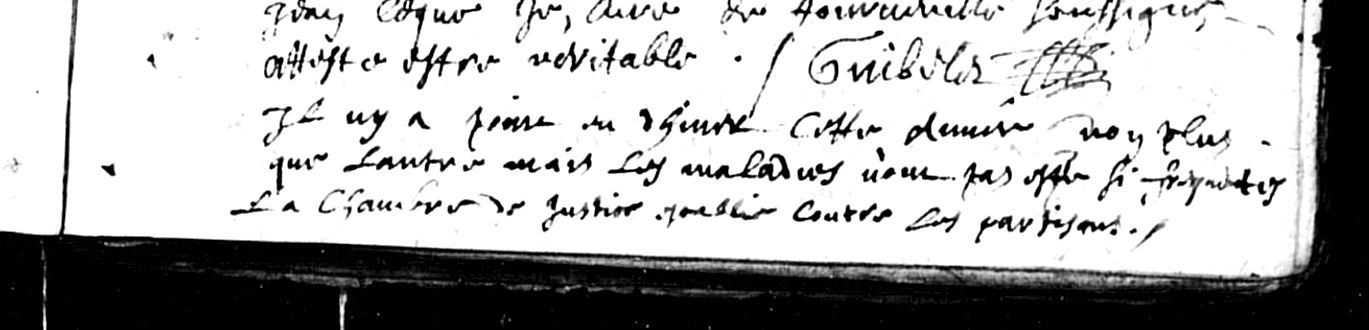 Jean Coque Je, Cure de soussigné
atteste estre veritable . / Guibeler
Il ny a point eu dhiver cette année non plus
que Lautre mais Les maladies nont pas este si frequentes
La Chambre de Justice establie Contre Les partisans . /